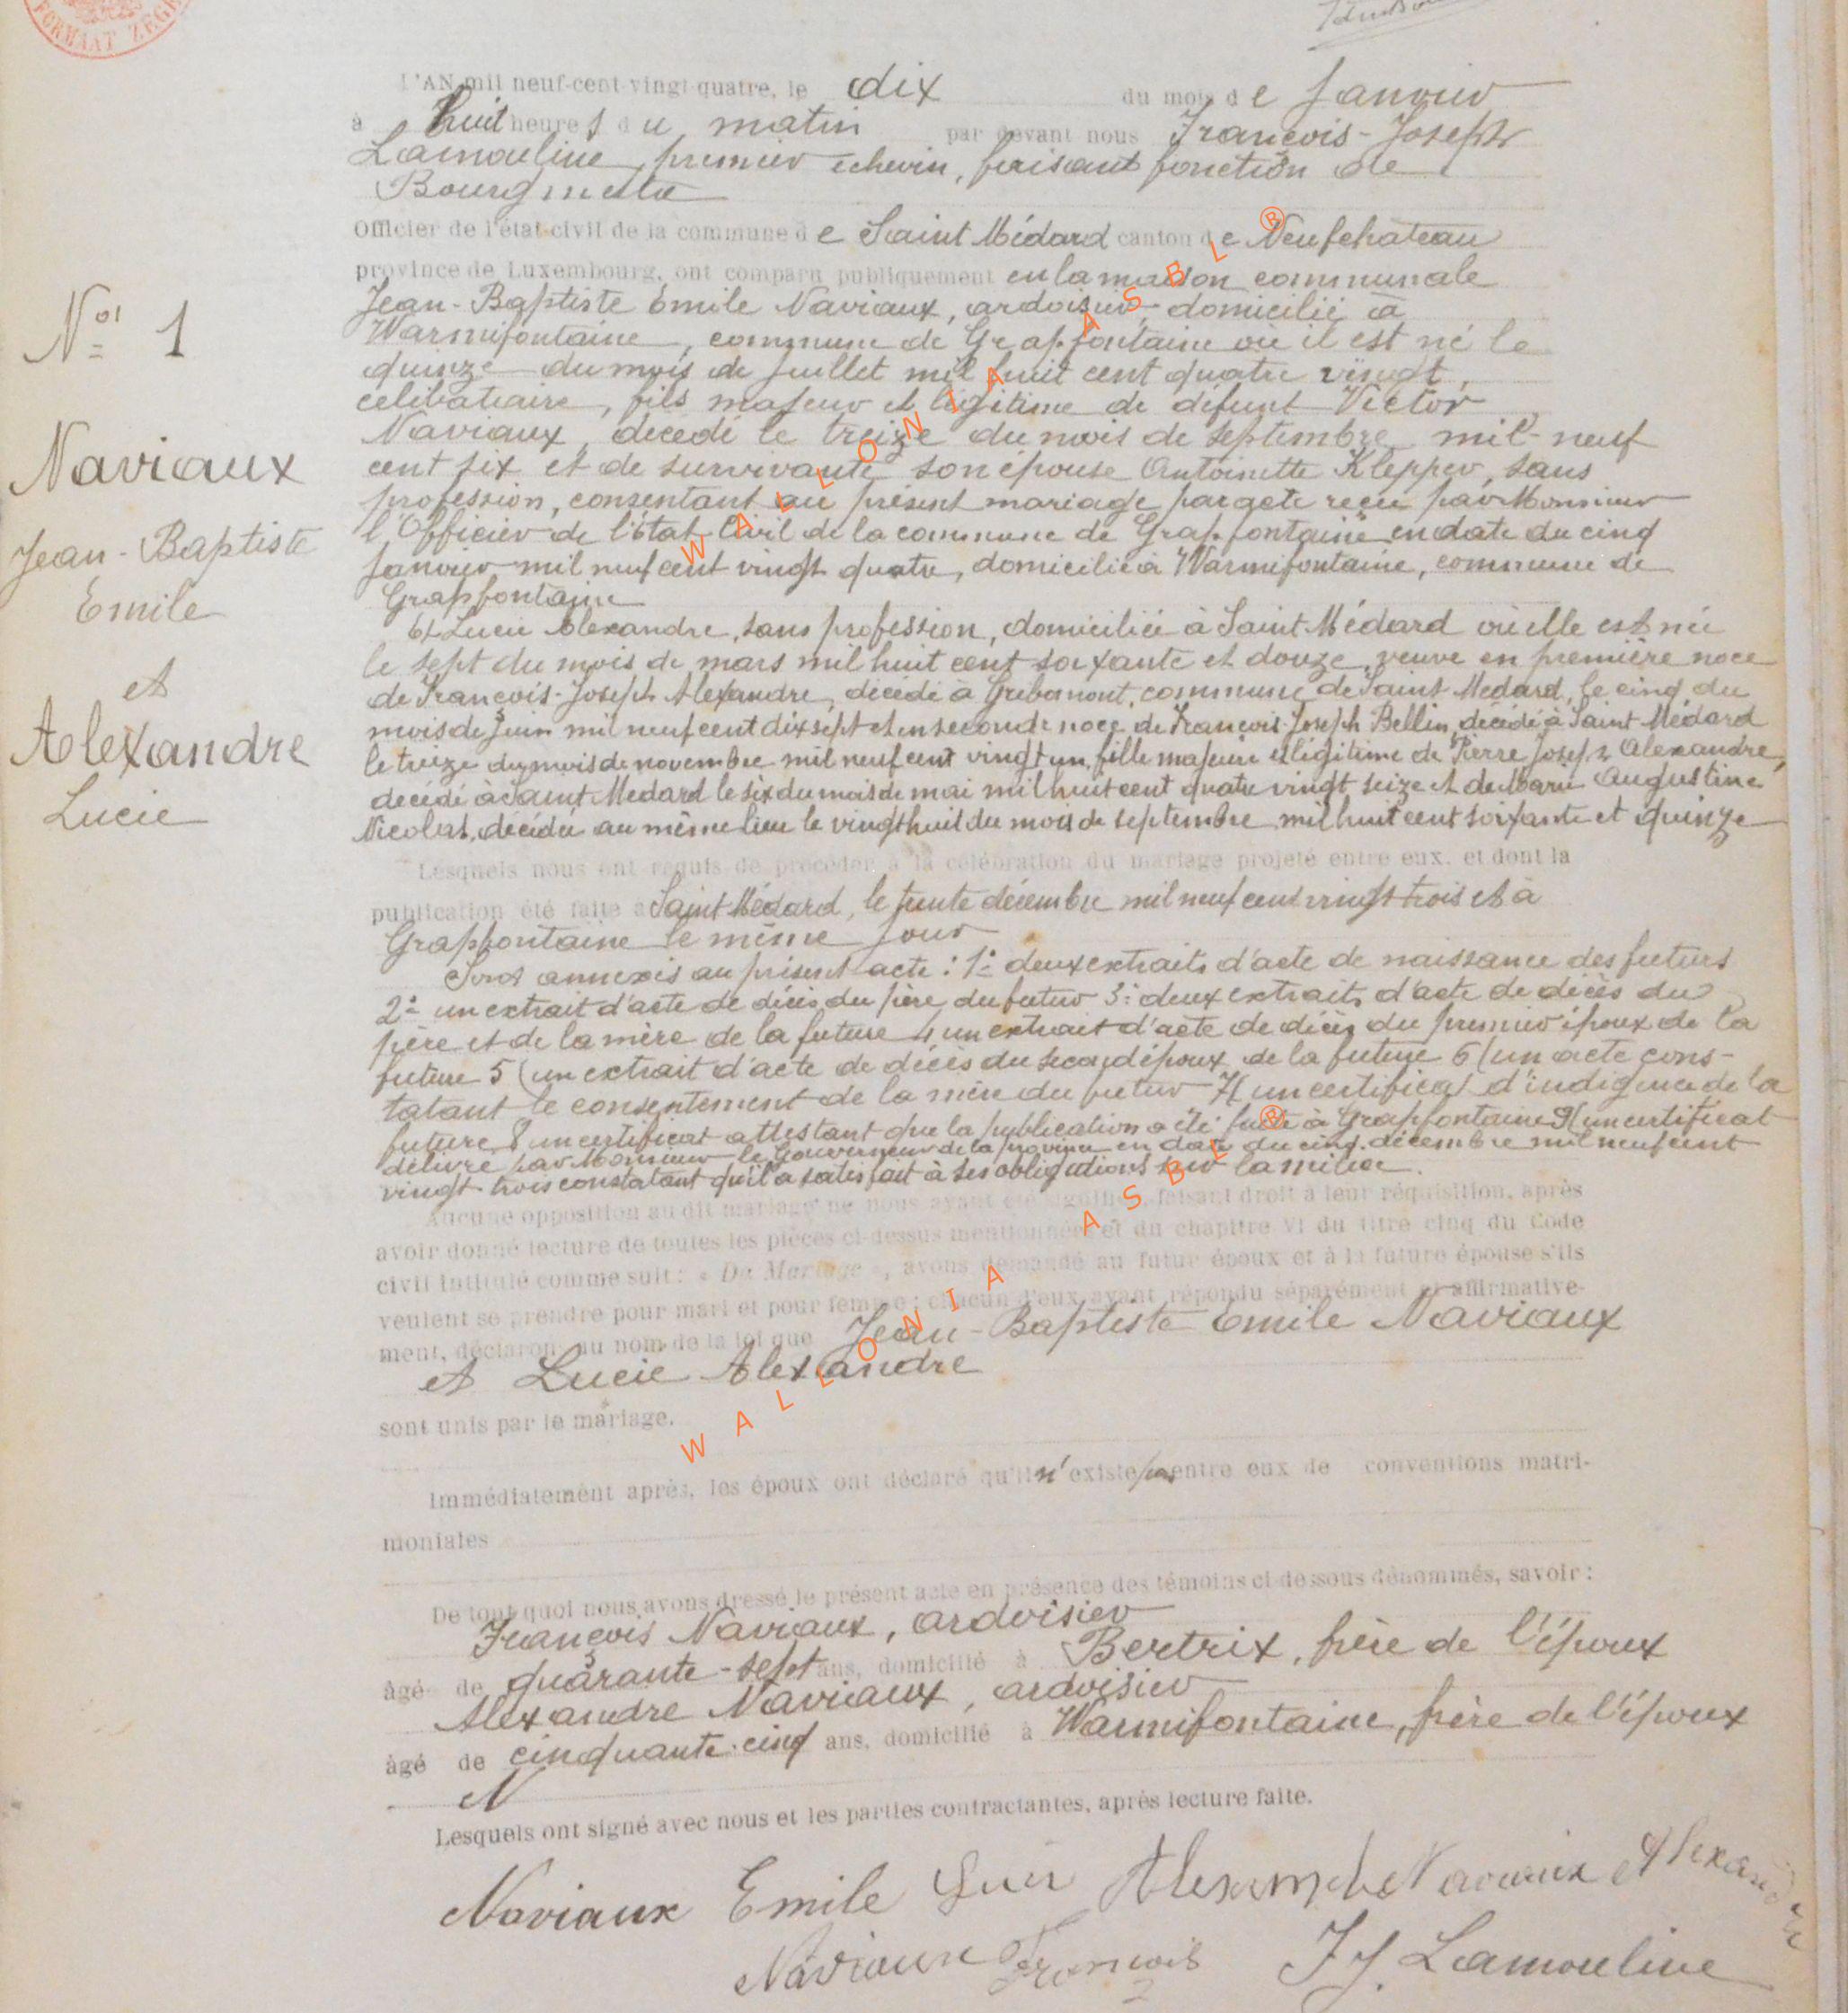 FORMAAT ZEGEL
L'AN mil neuf-cent-vingt-quatre, le dix du mois de Janvier
à huit heures du matin par devant nous François-Joseph
Lamouline, premier échevin, faisant fonction de
Bourgmestre
Officier de l'état-civil de la commune de Saint Médard canton de Neufchâteau
province de Luxembourg, ont comparu publiquement en la maison communale
Jean-Baptiste Emile Naviaux, ardoisier, domicilié à
Warmifontaine, commune de Grapfontaine où il est né le
quinze du mois de Juillet mil huit cent quatre vingt,
célibataire, fils majeur et légitime de défunt Victor
Naviaux, décédé le treize du mois de septembre mil-neuf
cent six et de survivante son épouse Antoinette Klepper, sans
profession, consentant au présent mariage par acte reçu par Monsieur
l'Officier de l'état Civil de la commune de Grapfontaine en date du cinq
Janvier mil neuf cent vingt quatre, domiciliée à Warmifontaine, commune de
Grapfontaine
Nº 1
Naviaux
Jean-Baptiste
Emile
et
Alexandre
Lucie
Et Lucie Alexandre, sans profession, domiciliée à Saint Médard où elle est née
le sept du mois de mars mil huit cent soixante et douze, veuve en première noce
de François-Joseph Alexandre, décédé à Gribomont, commune de Saint Médard, le cinq du
mois de Juin mil neuf cent dix sept et en seconde noce de François-Joseph Bellin, décédé à Saint-Médard
le treize du mois de novembre mil neuf cent vingt un, fille majeure et légitime de Pierre Joseph Alexandre,
décédé à Saint Médard le six du mois de mai mil huit cent quatre vingt seize et de Marie Augustine
Nicolas, décédée au même lieu le vingt huit du mois de septembre mil huit cent soixante et quinze
Lesquels nous ont requis de procéder à la célébration du mariage projeté entre eux, et dont la
publication été faite à Saint Médard, le trente décembre mil neuf cent vingt-trois et à
Grapfontaine le même jour
Sont annexés au présent acte : 1º deux extraits d'acte de naissance des futurs
2º un extrait d'acte de décès du père du futur 3º deux extraits d'acte de décès du
père et de la mère de la future 4 un extrait d'acte de décès du premier époux de la
future 5( un extrait d'acte de décès du second époux de la future 6( un acte cons-
tatant le consentement de la mère du futur 7( un certificat d'indigence de la
future 8 un certificat attestant que la publication a été faite à Grapfontaine 9( un certificat
délivré par Monsieur le Gouverneur de la province en date du cinq décembre mil neuf cent
vingt trois constatant qu'il a satisfait à ses obligations sur la milice.
Aucune opposition au dit mariage ne nous ayant été signifiée, faisant droit à leur réquisition, après
avoir donné lecture de toutes les pièces ci-dessus mentionnées et du chapitre VI du titre cinq du Code
civil intitulé comme suit : « Du Mariage », avons demandé au futur époux et à la future épouse s'ils
veulent se prendre pour mari et pour femme ; chacun d'eux ayant répondu séparément et affirmative-
ment, déclarons au nom de la loi que Jean-Baptiste Emile Naviaux
et Lucie Alexandre
sont unis par le mariage.
Immédiatement après, les époux ont déclaré qu'il n'existe pas entre eux de conventions matri-
moniales
De tout quoi nous avons dressé le présent acte en présence des témoins ci-dessous dénommés, savoir :
François Naviaux, ardoisier
âgé de quarante-sept ans, domicilié à Bertrix, frère de l'époux
Alexandre Naviaux, ardoisier
âgé de cinquante-cinq ans, domicilié à Warmifontaine, frère de l'époux
Lesquels ont signé avec nous et les parties contractantes, après lecture faite.
Naviaux Emile Lucie Alexandre Naviaux Alexandre
Naviaux François FJ. Lamouline
WALLONIA ASBL ®
WALLONIA ASBL ®